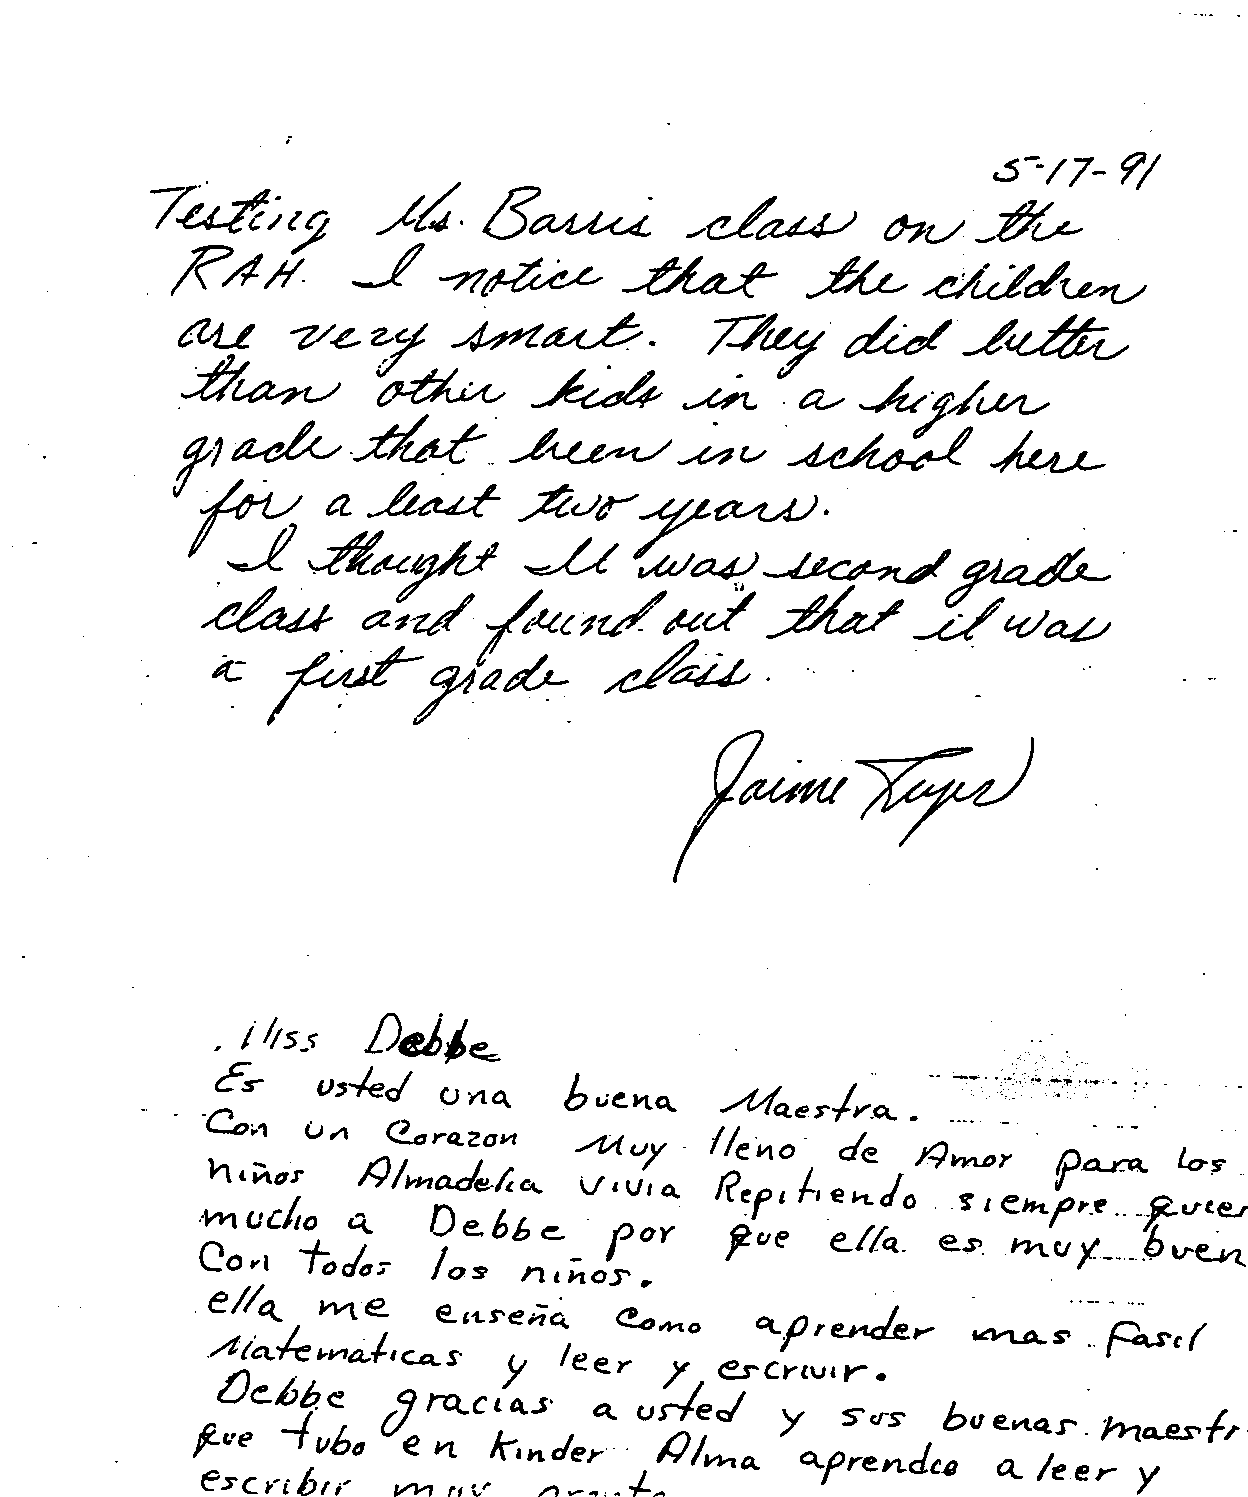 5-17-91
Testing Ms. Barris class on the
RAH. I notice that the children
are very smart. They did better
than other kids in a higher
grade that been in school here
for a least two years.
I thought It was second grade
class and found out that it was
a first grade class.
Jaime
Miss Debbe
Es usted una buena Maestra.
Con un Corazon Muy lleno de Amor para los
niños Almadelia vivia Repitiendo siempre quier
mucho a Debbe por que ella es muy buen
Con todos los niños.
ella me enseña como aprender mas fasil
Matematicas y leer y escrivir.
Debbe gracias a usted y sus buenas maestr
que tubo en Kinder Alma aprendio a leer y
escribir muy pronto